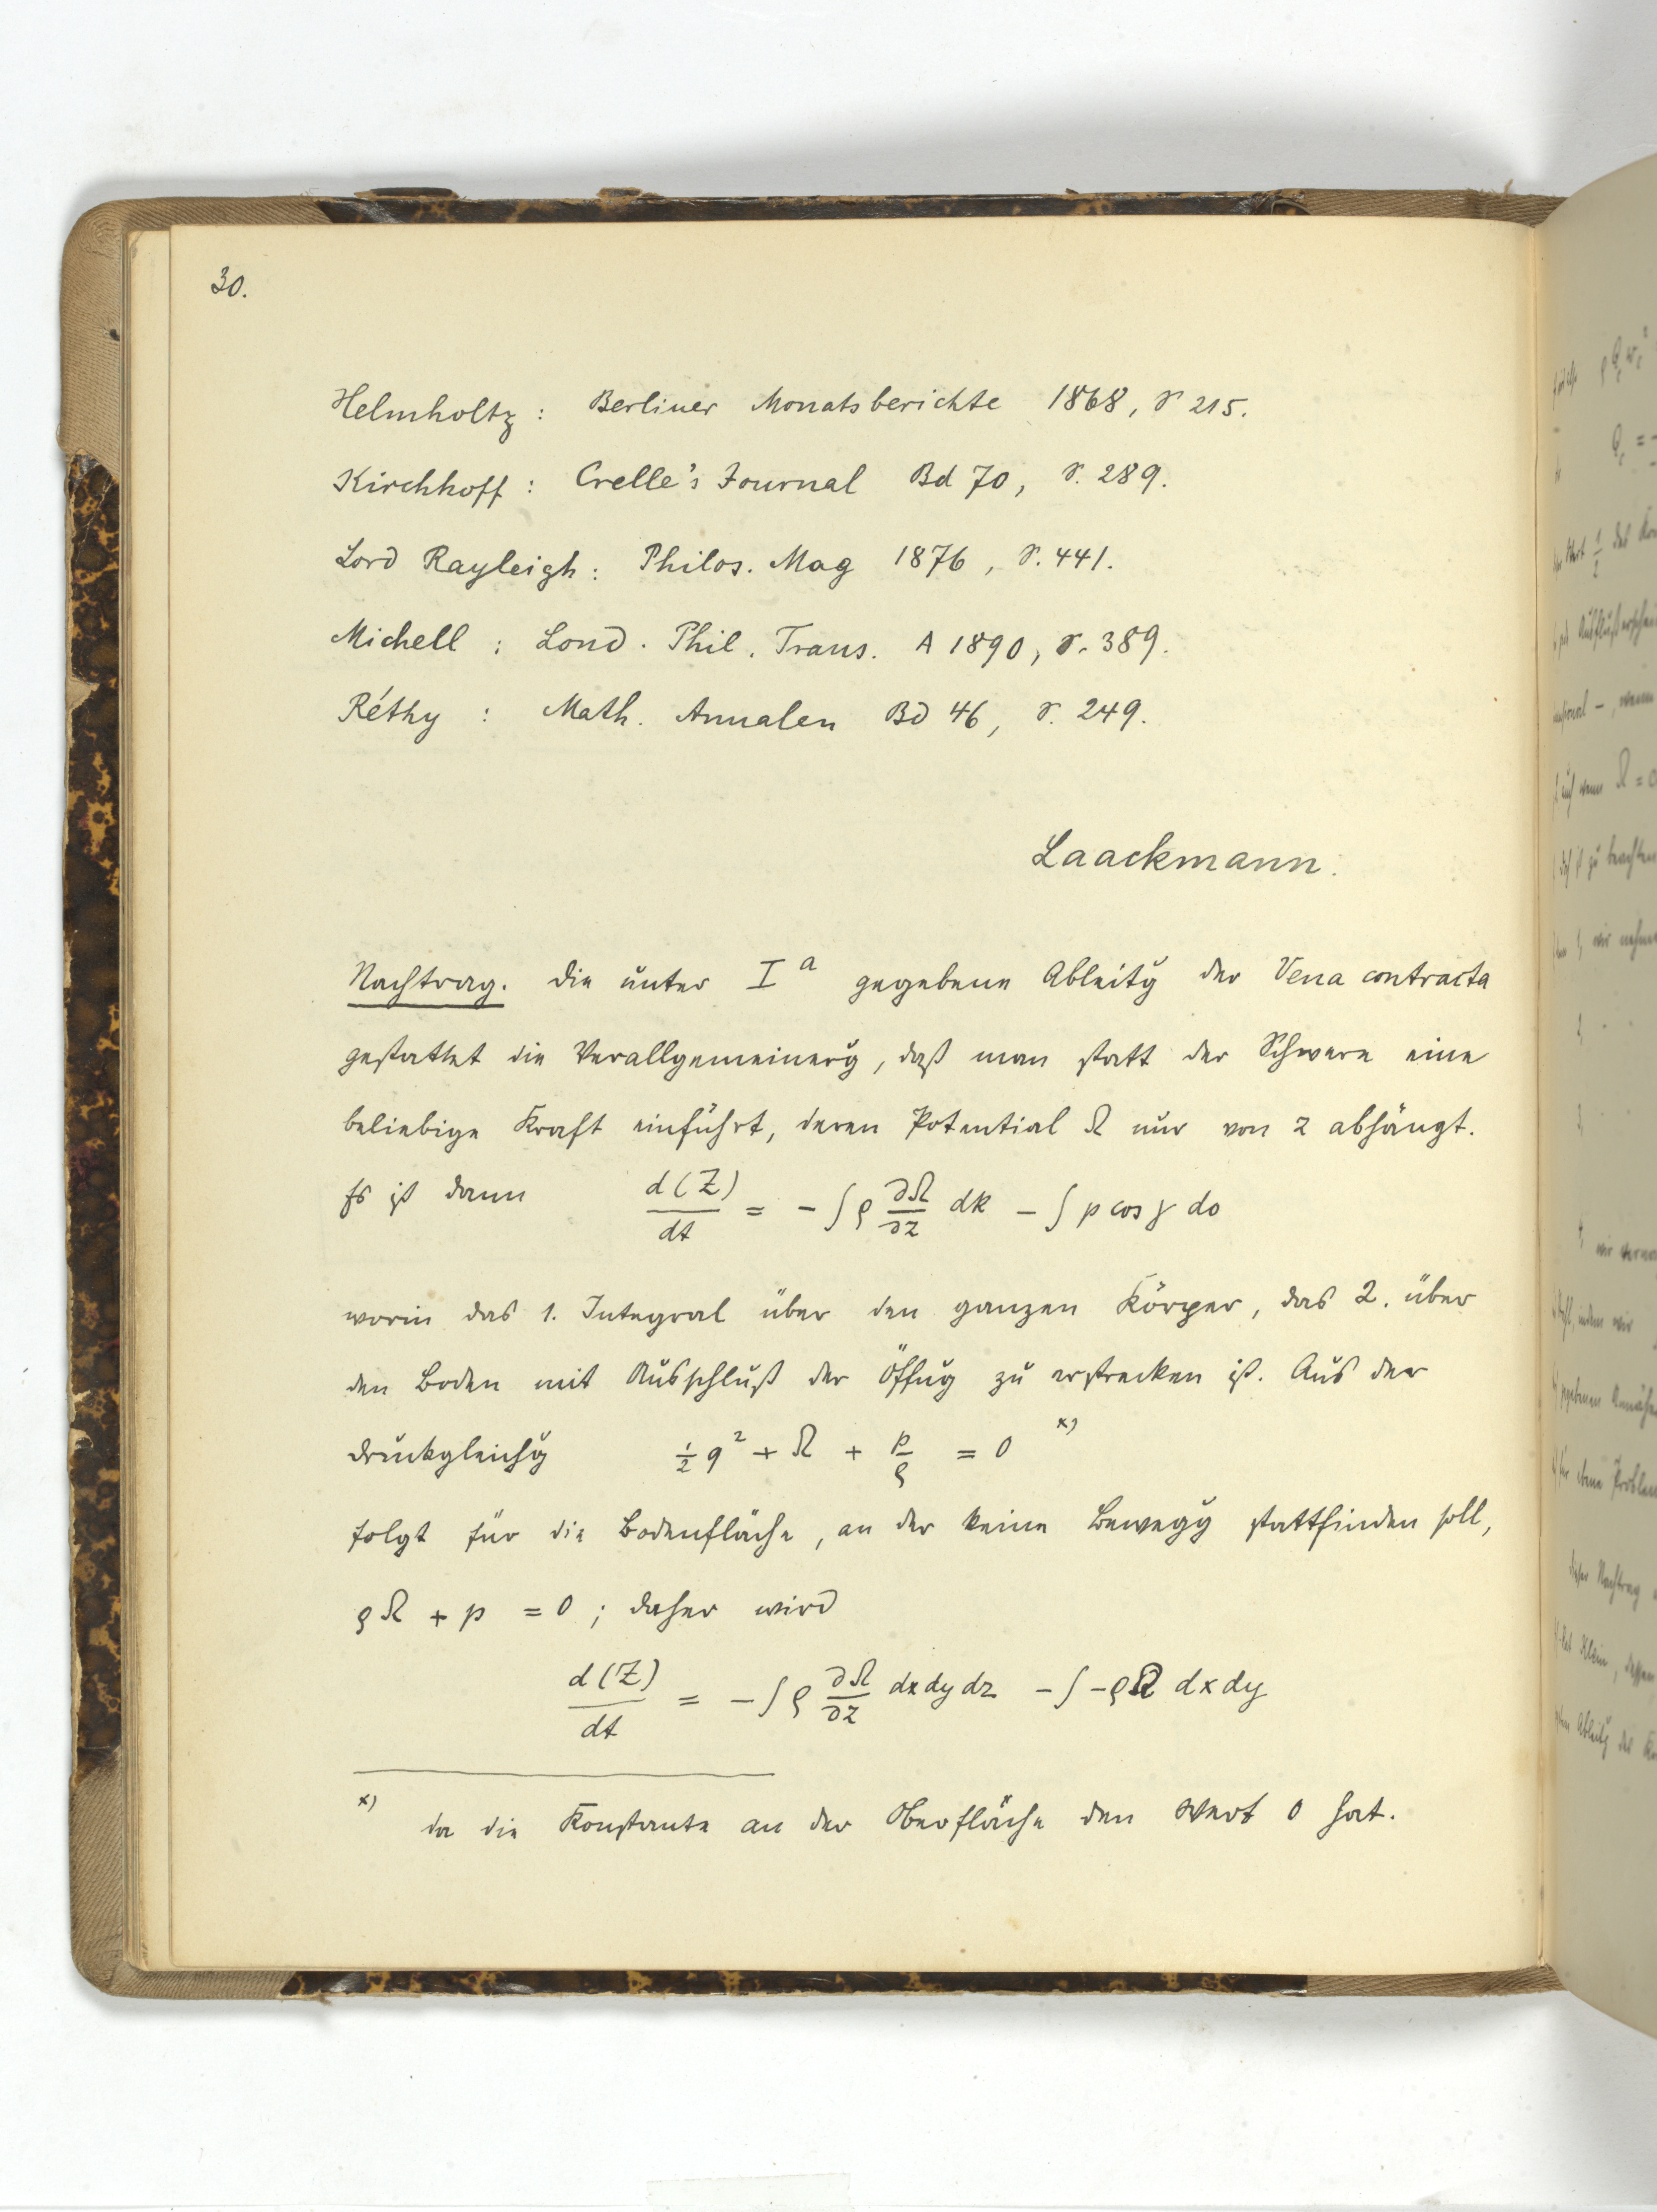 30.
Helmholtz : Berliner Monatsberichte 1868, S 215.
Kirchhoff : Crelle's Journal Bd 70, S. 289.
Lord Rayleigh : Philos. Mag 1876, S. 441.
Michell : Lond. Phil. Trans. A 1890, S. 389.
Réthy : Math. Annalen Bd 46, S. 249.
Laackmann.
Nachtrag. Die unter I a gegebene Ableitg der Vena contracta
gestattet die Verallgemeinerg, daß man statt der Schwere eine
beliebige Kraft einführt, deren Potential Ω nur von z abhängt.
Es ist dann d(Z)/dt = - ∫ ρ ∂Ω/∂z dk - ∫ p cos γ do
worin das 1. Integral über den ganzen Körper, das 2. über
den Boden mit Ausschluß der Öffng zu erstrecken ist. Aus der
Druckgleichg ½ q² + Ω + p/ρ = 0 x)
folgt für die Bodenfläche, an der keine Bewegg stattfinden soll,
ρΩ + p = 0 ; daher wird
d(Z)/dt = - ∫ ρ ∂Ω/∂z dx dy dz - ∫ - ρΩ dx dy
x) da die Konstante an der Oberfläche den Wert 0 hat.